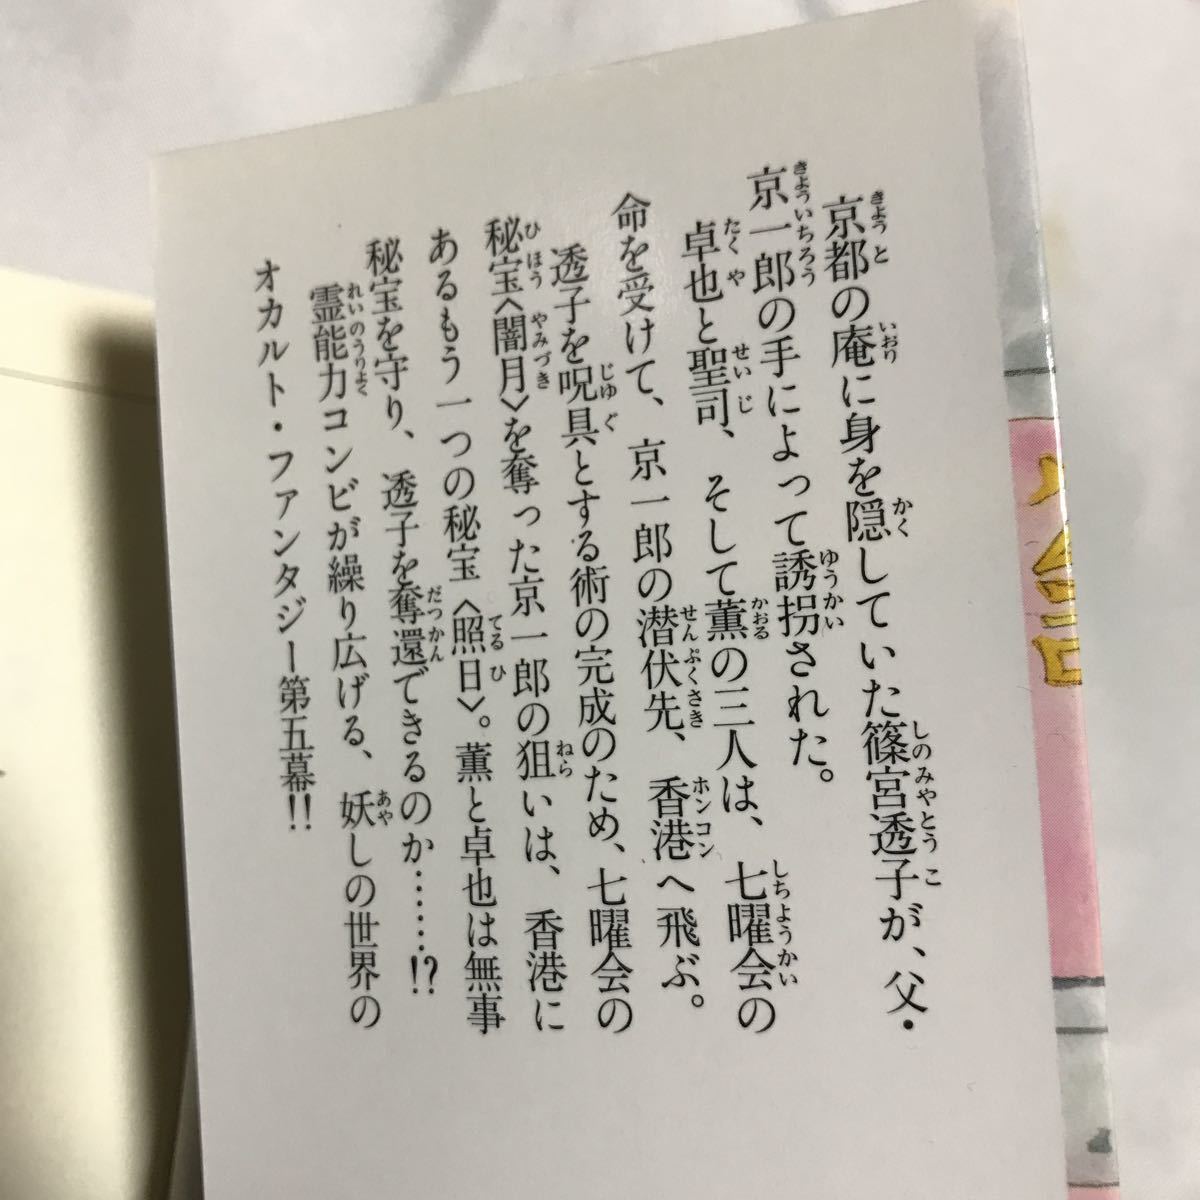 京都の庵に身を隠していた篠宮透子が、父・
京一郎の手によって誘拐された。
卓也と聖司、そして薫の三人は、七曜会の
命を受けて、京一郎の潜伏先、香港へ飛ぶ。
透子を呪具とする術の完成のため、七曜会の
秘宝〈闇月〉を奪った京一郎の狙いは、香港に
あるもう一つの秘宝〈照日〉。薫と卓也は無事
秘宝を守り、透子を奪還できるのか……!?
霊能力コンビが繰り広げる、妖しの世界の
オカルト・ファンタジー第五幕!!